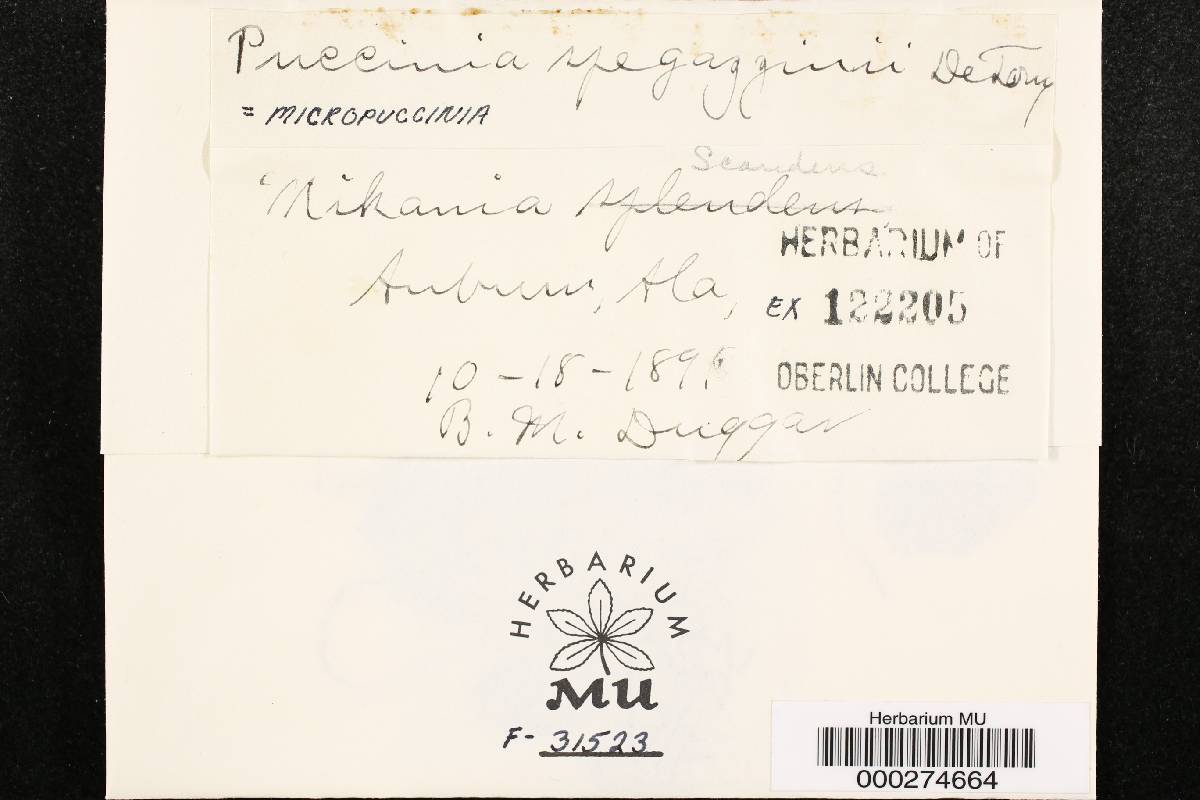 Puccinia spegazzinii DeTony
= MICROPUCCINIA
Scandens
Mikania splendens
HERBARIUM OF
Auburn, Ala,
EX 122205
10-18-189
OBERLIN COLLEGE
B. M. Duggar
HERBARIUM
MU
F- 31523
Herbarium MU
000274664